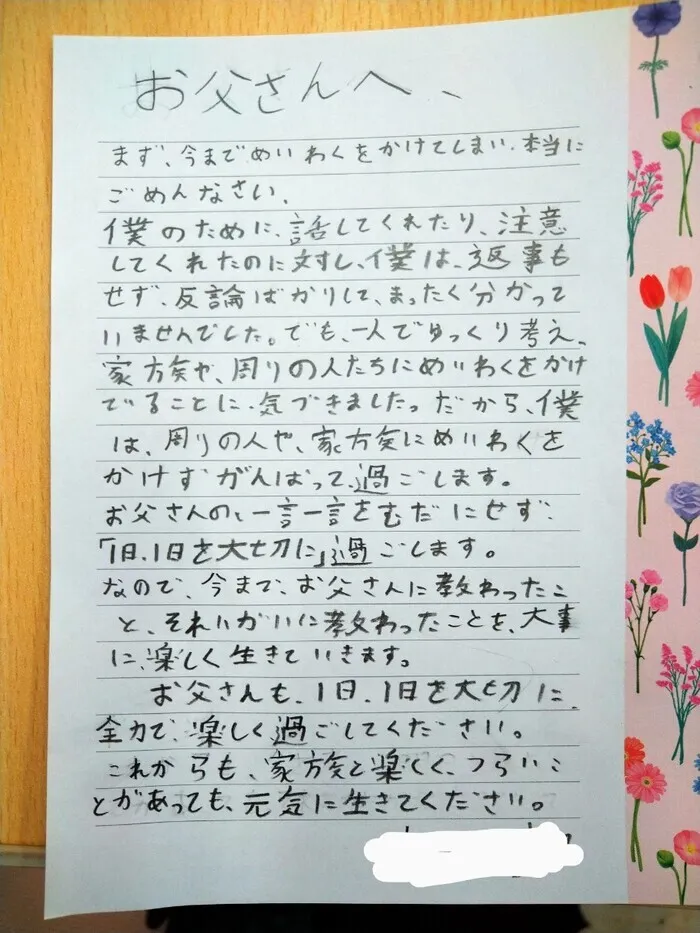 お父さんへ、
まず、今までめいわくをかけてしまい、本当に
ごめんなさい、
僕のために、話してくれたり、注意
してくれたのに対し、僕は、返事も
せず、反論ばかりして、まったく分かって
いませんでした。でも、一人でゆっくり考え、
家族や、周りの人たちにめいわくをかけ
でることに、気づきましたっだから、僕
は、周りの人や、家族にめいわくを
かけずがんばって、過ごします。
お父さんの、一言一言をむだにせず、
「1日、1日を大切に」過ごします。
なので、今まで、お父さんに教わったこ
と、それいがいに教わったことを、大事
に、楽しく生きていきます。
お父さんも、1日、1日を大切に、
全力で、楽しく過ごしてください。
これからも、家族と楽しく、つらいこ
とがあっても、元気に生きてください。